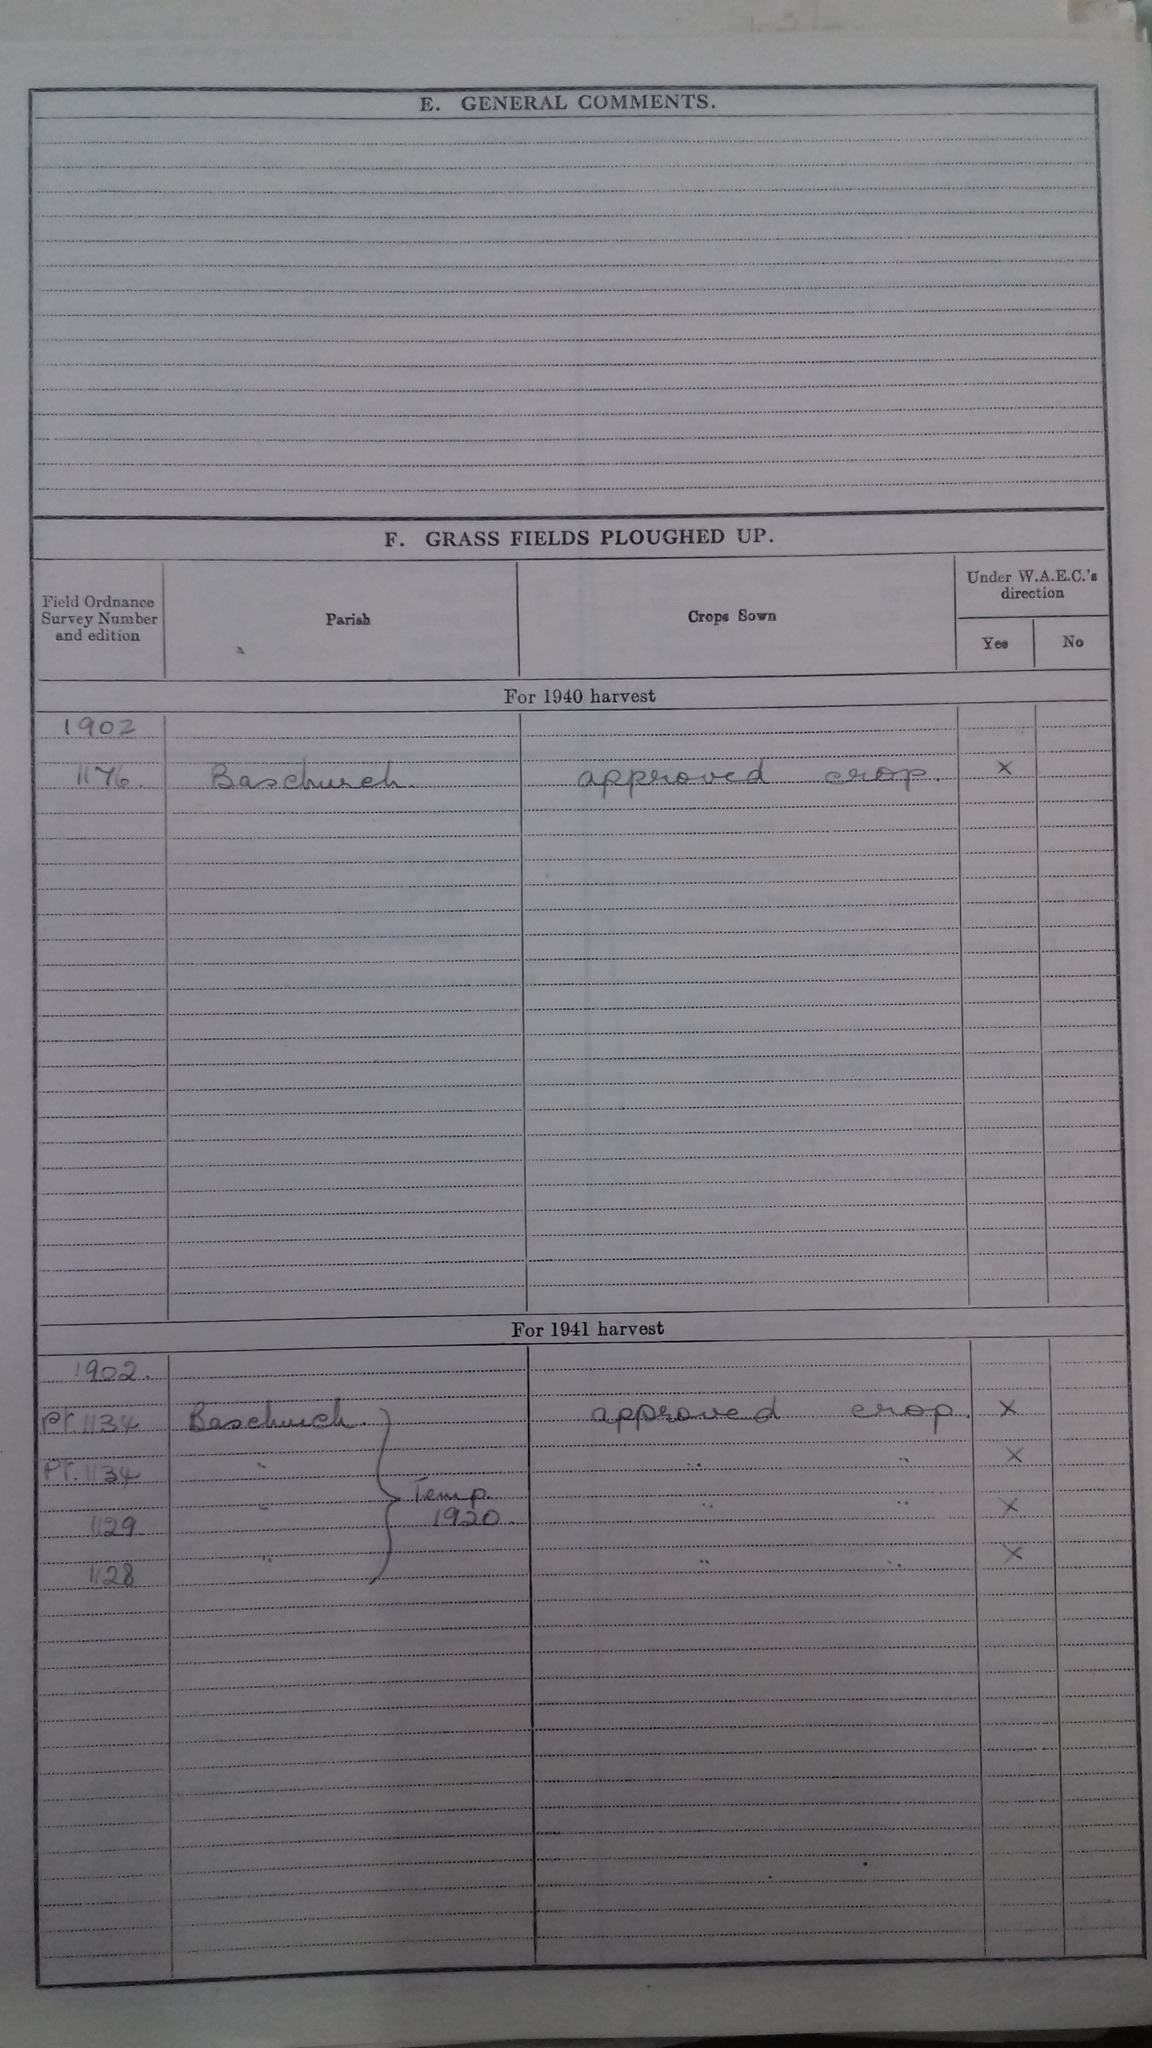 E. GENERAL COMMENTS.
F. GRASS FIELDS PLOUGHED UP.
Field Ordnance Survey Number and edition
Parish
Crops Sown
Under W.A.E.C.'s direction
Yes No
For 1940 harvest
1902
1176. Baschurch. approved crop. X
For 1941 harvest
1902.
Pt. 1134 Baschurch. approved crop. X
Pt. 1134 " " " X
Temp.
1129 " 1920. " " X
1128 " " " X